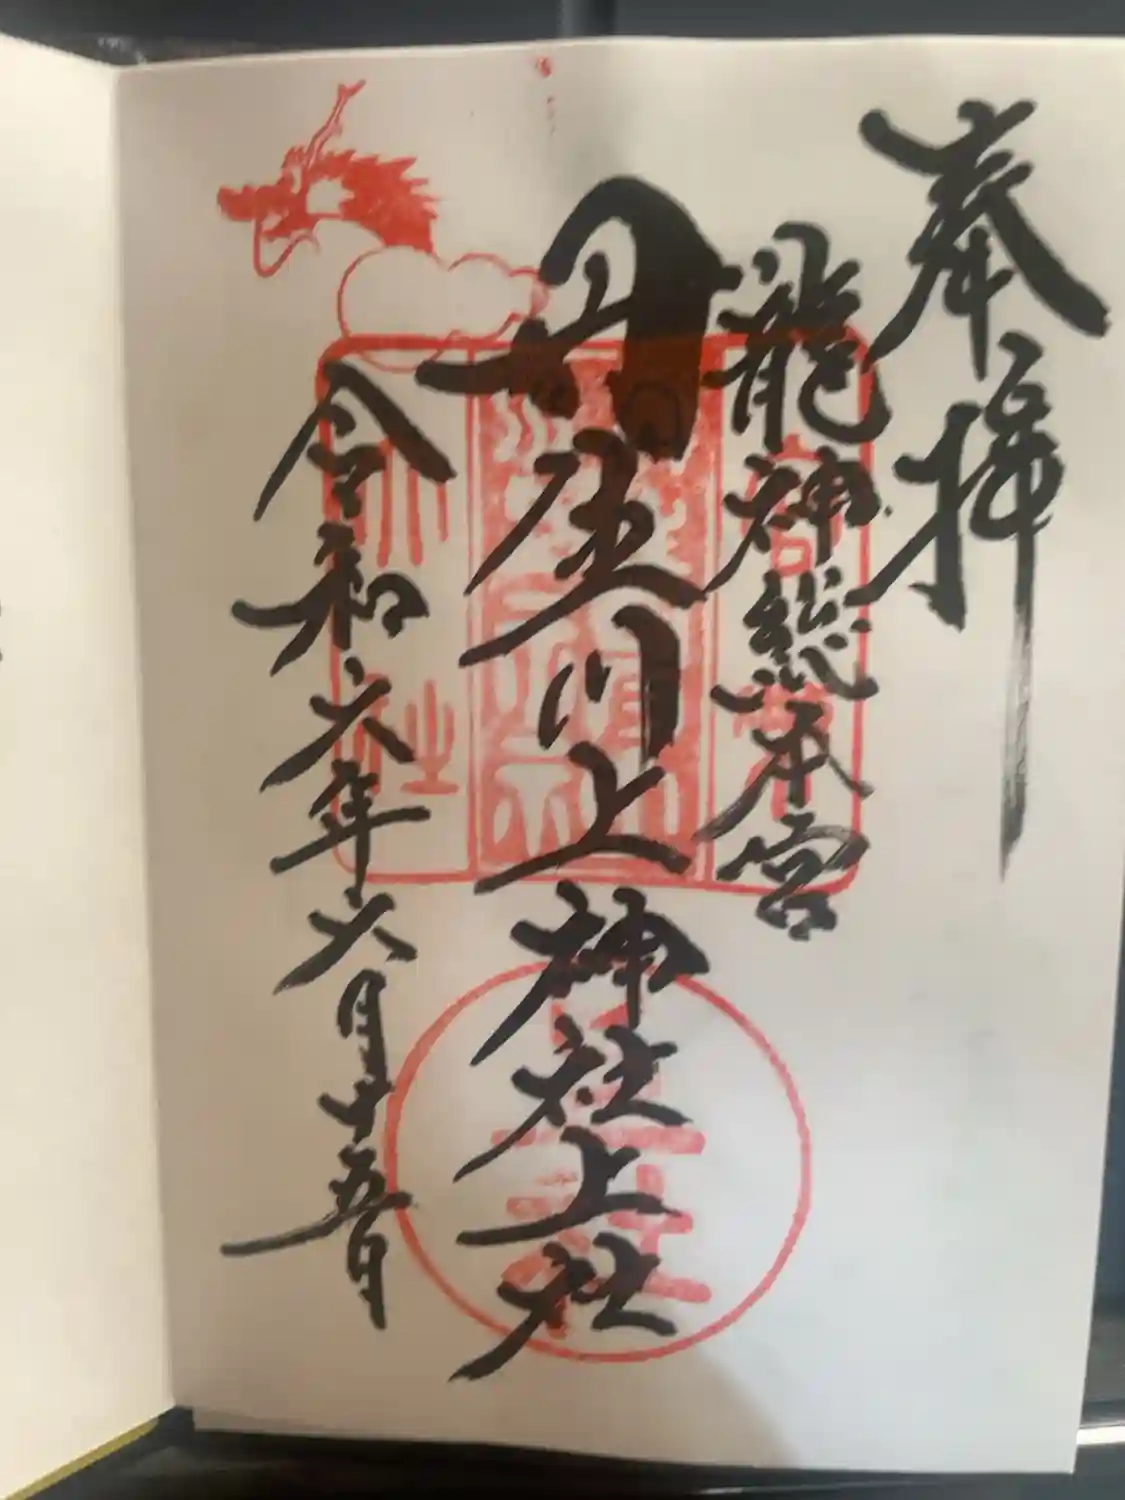 奉拝
龍神総本宮
丹生川上神社上社
令和六年六月十五日
上社